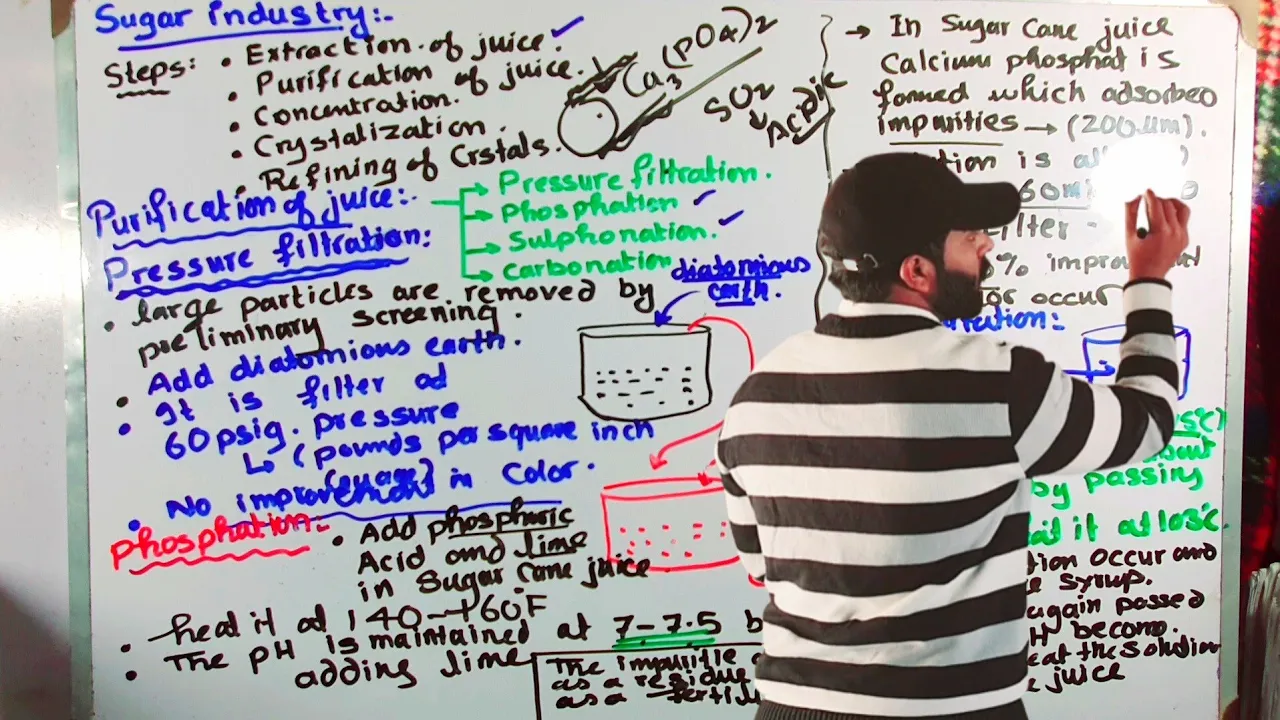 Sugar industry:-
Steps:
• Extraction of juice.
• Purification of juice.
• Concentration.
• Crystalization.
• Refining of Crstals.
Ca3(PO4)2
SO2
Acidic
Purification of juice:-
Pressure filtration.
Phosphation
Sulphonation.
Carbonation
Pressure filtration:
• large particles are removed by
preliminary screening.
• Add diatomious earth.
• It is filter ad
60 psig. pressure
(pounds per square inch
guage)
• No improvement in Color.
diatomious
earth.
Phosphation:-
• Add phosphoric
Acid and lime
in Sugar Cane juice
• heat it at 140-160F
• The pH is maintained at 7-7.5 b
adding lime
The impuritie
as a residue
as a fertil
→ In Sugar Cane juice
Calcium phosphat is
formed which adsorbed
impurities → (200um).
tion is al
60mi
ilter -
% impro
or occur
ration:
by passing
at it at 105c.
tion occur and
syrup.
again passed
H become.
eat the solution
juice